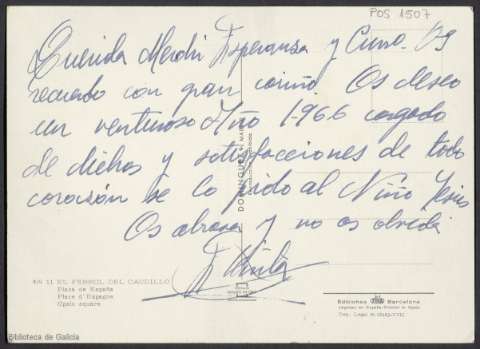 POS 1507
Querida Merchi Esperanza y Curso. Os
recuerdo con gran cariño. Os deseo
un venturoso Año 1.966 cargado
de dichas y satisfacciones de todo
corazón se lo pido al Niño Jesús
Os abraza y no os olvida
DOMINGUEZ
Nº 11 EL FERROL DEL CAUDILLO
Plaza de España
Place d'Espagne
Spain square
Ediciones Barcelona
Biblioteca de Galicia